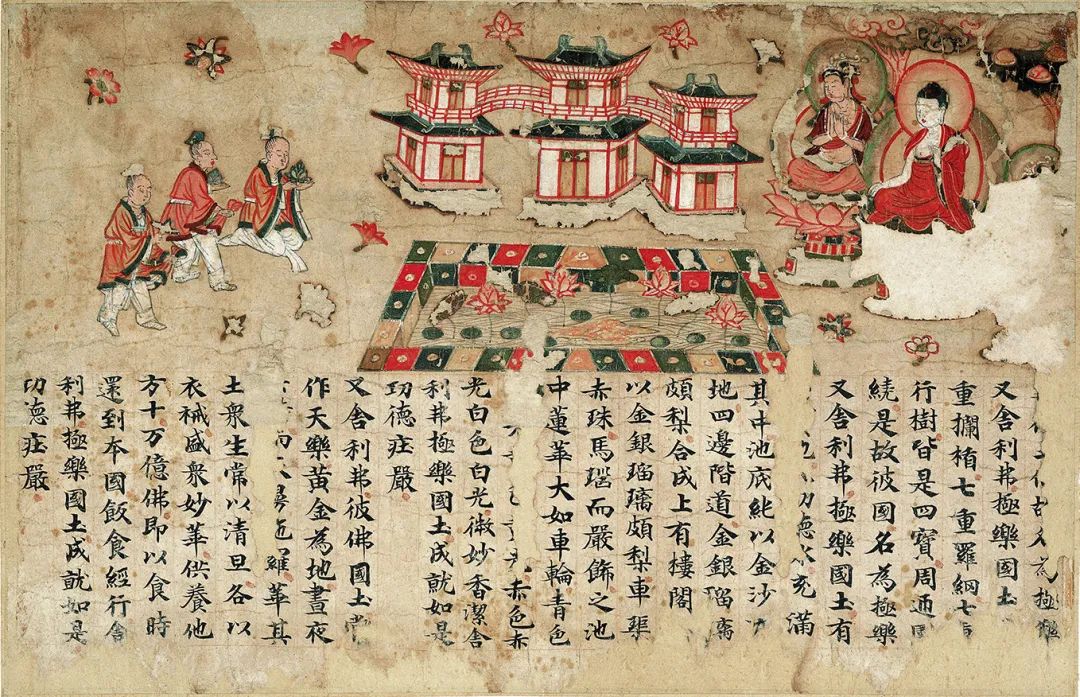 為極
又舍利弗極樂國土
重攔楯七重羅網七重
行樹皆是四寶周迊
繞是故彼國名為極樂
又舍利弗極樂國土有
功德水充滿
其中池底純以金沙
地四邊階道金銀瑠璃
頗梨合成上有樓閣
以金銀瑠璃頗梨車璖
赤珠馬瑙而嚴飾之池
中蓮華大如車輪青色
光赤色赤
光白色白光微妙香潔舍
利弗極樂國土成就如是
功德莊嚴
又舍利弗彼佛國土常
作天樂黃金為地晝夜
而天羅華其
土衆生常以清旦各以
衣裓盛衆妙華供養他
方十万億佛即以食時
還到本國飯食經行舍
利弗極樂國土成就如是
功德莊嚴